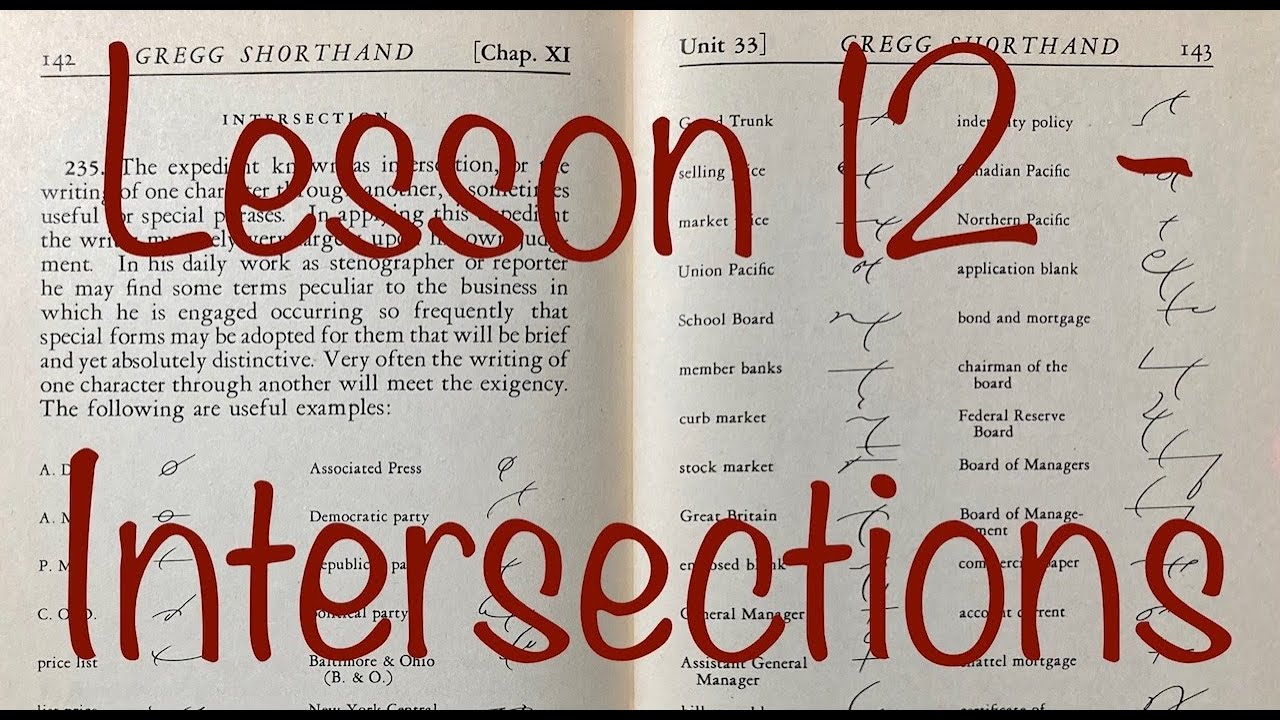 Lesson 12 -
Intersections
142 GREGG SHORTHAND [Chap. XI
INTERSECTION
235. The expedient known as intersection, or the
writing of one character through another, is sometimes
useful for special phrases. In applying this expedient
the writer must rely very largely upon his own judg-
ment. In his daily work as stenographer or reporter
he may find some terms peculiar to the business in
which he is engaged occurring so frequently that
special forms may be adopted for them that will be brief
and yet absolutely distinctive. Very often the writing of
one character through another will meet the exigency.
The following are useful examples:
A. D. Associated Press
A. M. Democratic party
P. M. Republican party
C. O. D. Political party
price list Baltimore & Ohio
(B. & O.)
list price New York Central
Unit 33] GREGG SHORTHAND 143
Grand Trunk indemnity policy
selling price Canadian Pacific
market price Northern Pacific
Union Pacific application blank
School Board bond and mortgage
member banks chairman of the
board
curb market Federal Reserve
Board
stock market Board of Managers
Great Britain Board of Manage-
ment
enclosed blank commercial paper
General Manager account current
Assistant General chattel mortgage
Manager
certificate of